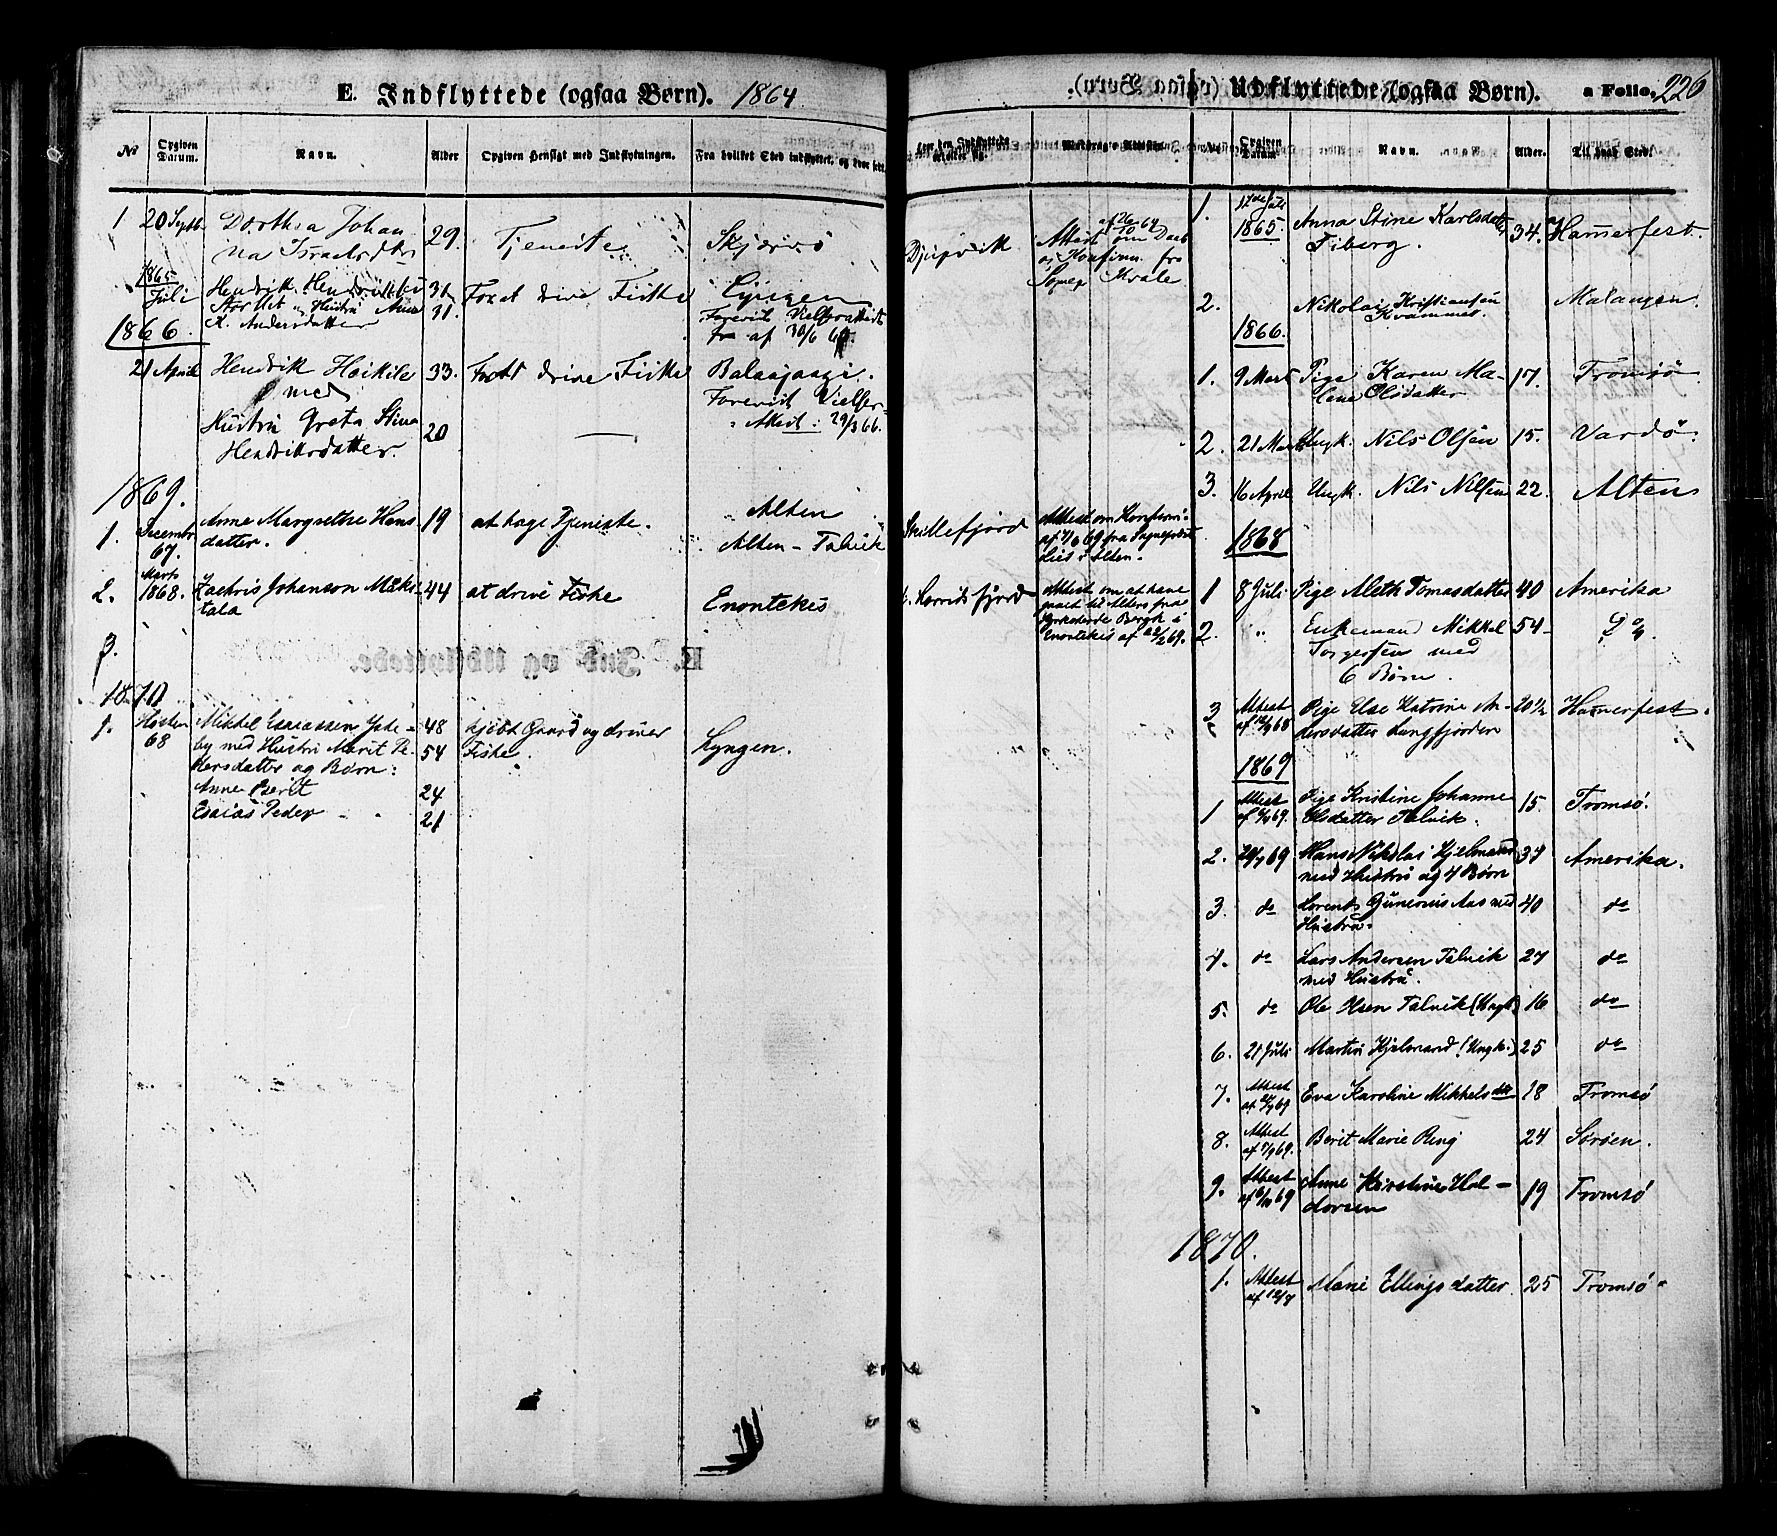 E. Indflyttede (ogsaa Børn). 1864
No Opgiven Datum. Navn. Alder Opgiven Hensigt med Indflytningen. Fra hvilket Sted indflyttet, og hvor
1 20 Septb. Dorthea Johan 29. Tjeneste Skjærvö Djupvik Attest af 26/10 64 om Daab
na Israelsdtr og Konfirm. fra
Sognepr. Kvale
1865
Juli Hendrik Hendriksen 31 For at drive Fiske Lyngen
og Hustru Anna 31. Forevist Vielsesattest
K. Andersdatter af 30/6 65.
1866.
21 April Hendrik Heikile 33. For at drive Fiske Balsfjord.
med Forevist Vielses-
Hustru Greta Stina 20 — Attest 29/3 66.
Hendriksdatter.
1869.
1. Decembr 67. Anne Margrethe Hans 19 at tage Tjeneste. Alten Skillefjord Attest om Konfirm:
datter. Alten – Talvik af 7/6 69 fra Sognepræst
i Alten.
2. Marts 1868. Zachris Johanson Mäki 44 at drive Fiske Enontekis Korsfjord Attest om at have
tala gaaet til Alters fra
Bergk i
Enontekis af 22/2 69.
3.
1870
1. Høsten 68 Mikkel Esaiassen Joke- 48 kjøbt Gaard og driver Lyngen.
by med Hustru Marit Pe- 54 Fiske.
dersdatter og Børn:
Anne Berit 24
Esaias Peder 21
Udflyttede (ogsaa Børn). a Folio. 226
No Opgiven Datum Navn. Alder. Til hvad Sted.
1. 17de Juli
1865. Anna Stine Karlsdatter 34. Hamerfest.
Fiberg.
2. Nikolai Kristiansen Malangen.
Krammer.
1866.
1. 9 Marts Pige Karen Ma- 17. Tromsö
lene Olsdatter
2. 21 Marts Ungk. Nils Olsen 15. Vardö
3. 16 April Ungk. Nils Nilsen 22. Alten
1868
1 8 Juli Pige Aleth Tomasdatter 40 Amerika
2. " Enkemand Mikkel 54 – do
Torgersen med
6 Børn.
3 Attest af 12/9 68 Pige Else Katrine An- 20 1/2 Hamerfest.
dersdatter Langfjorden
1869
1 Attest af 69. Pige Kristine Johanne 15. Tromsö.
Olsdatter Talvik.
2. 20/7 69 Hans Nikolai Kjelmand 34 Amerika.
med Hustru og 4 Børn
3. do Lorents Gunerius Aas med 40 do
Hustru.
4. do Lars Andersen Talvik 27 do
med Hustru.
5. do Ole Olsen Talvik (Ungk) 16 do
6. 21 Juli Martin Kjelmand (Ungk.) 25 do
7. Attest af 69 Eva Karoline Mikkelsdtr 18 Tromsö
8. Attest af 69. Berit Marie Ring 24 Sörøen.
9. Attest af 69 Anne Kirstine Hal- 19 Tromsö
dorsen
1870.
1. Attest af 12/7 Marie Ellingsdatter 25 Tromsö